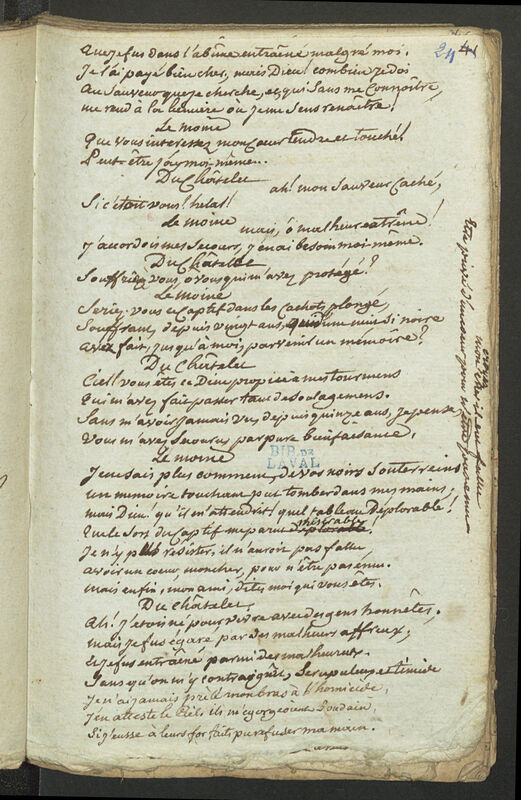 24 41
Que je fus dans l'abîme entraîné malgré moi.
Je l'ai payé bien cher, mais Dieu! combien je doi
Au Sauveur que je cherche, et qui Sans me Connoître,
me rend à la lumière où je me Sens renaître!
Le moine
Que vous interessez mon Coeur tendre et touché!
Peut-être j'ay moi-même...
Du Châtelet
ah! mon Sauveur Caché,
Si c'étoit vous! helas!
Le moine
mais, ô malheur extrême!
J'accordois mes Secours, j'en ai besoin moi-même.
Du Châtelet
Souffriez vous, o vous qui m'avez protégé?
Le moine
Seriez-vous ce Captif dans les Cachots plongé,
Souffrant, depuis vingt ans, nuit Si noire
avez fait, jusqu'à moi, parvenir un mémoire?
Du Châtelet
Ciel! vous êtes ce Dieu propice à mes tourmens
Qui m'avez fait passer tant de Soulagemens.
Sans m'avoir jamais vu, depuis quinze ans, je pense
Vous m'avez Secouru par pure bienfaisance.
BIB. DE
LAVAL
Le moine
Je ne Sais plus comment, de vos noirs Souterreins
un memoire touchant put tomber dans mes mains,
mais Dieu! qu'il m'attendrit! quel tableau Déplorable!
Que le Sort du Captif me parut misérable!
Je n'y pus résister, il n'auroit pas fallu
avoir un coeur, mon cher, pour n'être pas ému.
mais enfin, mon ami, dites moi qui vous êtes.
Du Châtelet,
Ah! j'étois né pour vivre avec des gens honnêtes,
mais je fus égaré par des malheurs affreux,
Et je fus entraîné parmi des malheureux.
Sans qu'on m'y contraignît, Scrupuleux et timide
Je n'ai jamais prêté mon bras à l'homicide,
J'en atteste le Ciel; ils m'égorgeoient Soudain,
Si j'eusse à leurs forfaits pu refuser ma main.